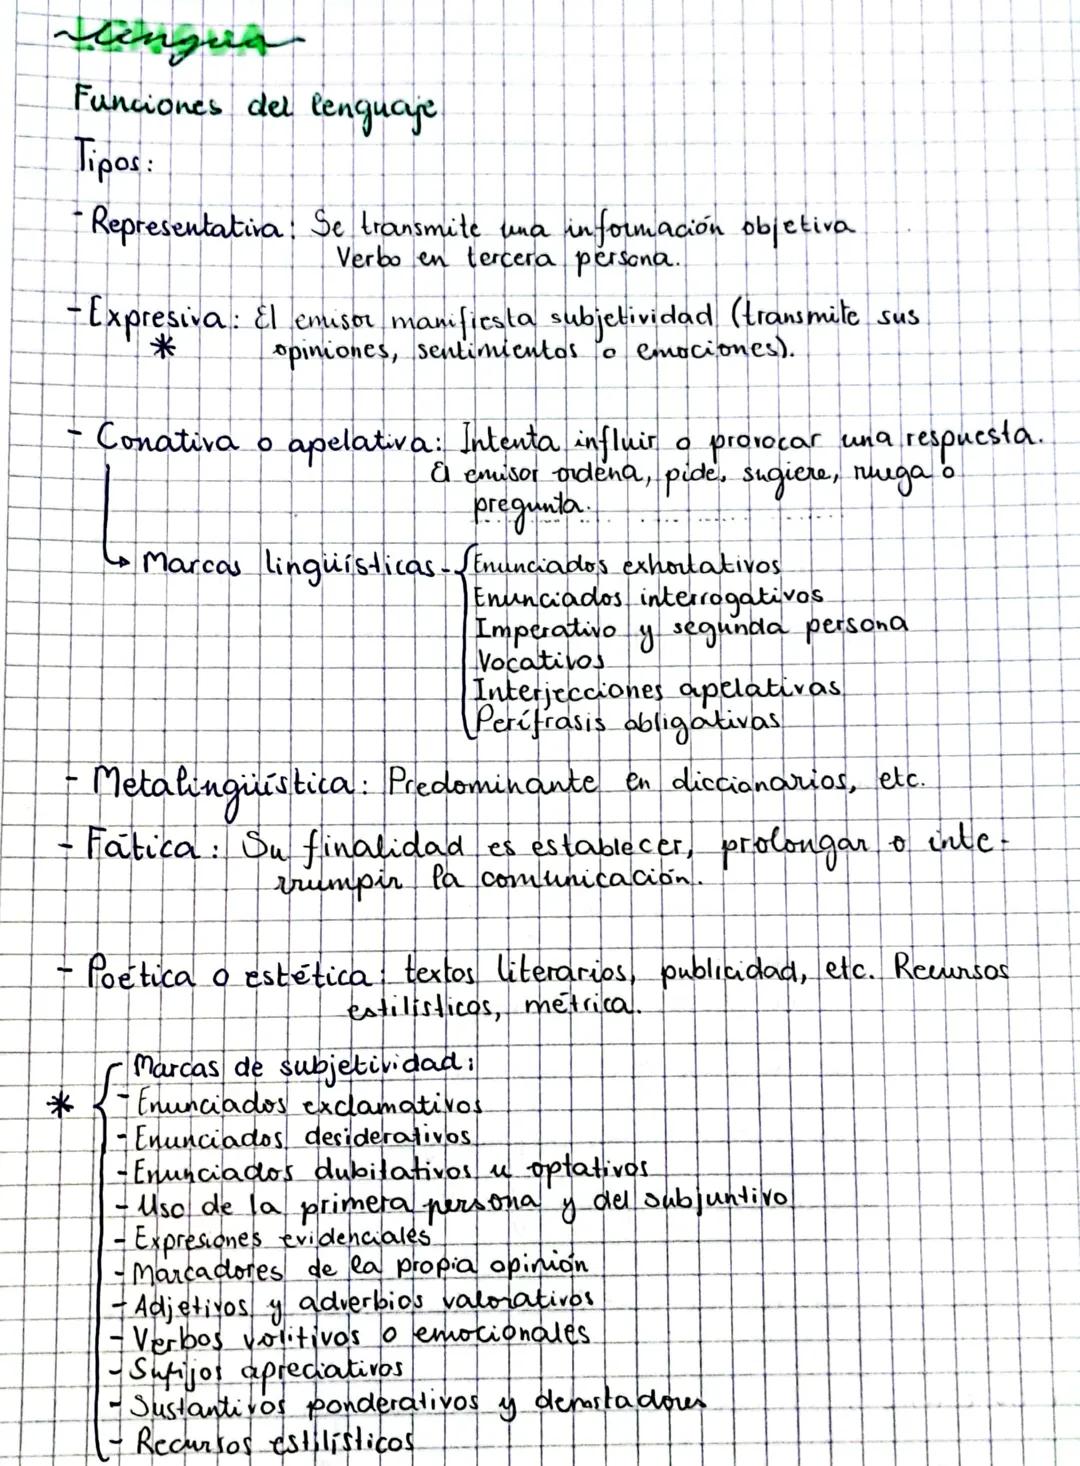 Lengua
Funciones del lenguaje
Tipos:
- Representativa: Se transmite una información objetiva
Verbo en tercera persona.
- Expresiva: El emisor manifiesta subjetividad (transmite sus
* opiniones, sentimientos o emociones).
- Conativa o apelativa: Intenta influir o provocar una respuesta.
El emisor ordena, pide, sugiere, ruega o
pregunta.
→ Marcas lingüísticas - { Enunciados exhortativos
Enunciados interrogativos
Imperativo y segunda persona
Vocativos
Interjecciones apelativas
Perífrasis obligativas
- Metalingüística: Predominante en diccionarios, etc.
- Fática: Su finalidad es establecer, prolongar o inte-
rrumpir la comunicación.
- Poética o estética: textos literarios, publicidad, etc. Recursos
estilísticos, métrica.
Marcas de subjetividad:
* { - Enunciados exclamativos
- Enunciados desiderativos
- Enunciados dubitativos u optativos
- Uso de la primera persona y del subjuntivo
- Expresiones evidenciales
- Marcadores de la propia opinión
- Adjetivos y adverbios valorativos
- Verbos volitivos o emocionales
- Sufijos apreciativos
- Sustantivos ponderativos y denostadores
- Recursos estilísticos